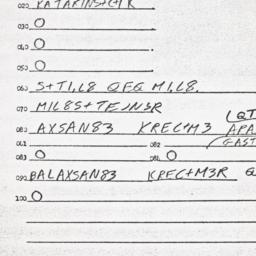 020 KATAKINS+C+IK
030 O
040 O
050 O
060 S+TI,L8 QEG MI,L8.
070 MIL8S+TEJN3R
080 AXSAN83 KREC+M3 APA
081 082 (GAST
083 O 084 O
090 BALAXSAN83 KREC+M3R Q
100 O